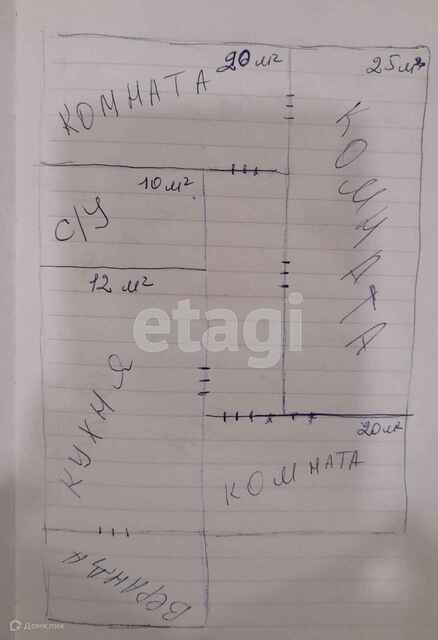 20 м²
25 м²
КОМНАТА
КОМНАТА
10 м²
С/У
12 м²
etagi
КУХНЯ
20 м²
КОМНАТА
ВЕРАНДА
Домклик